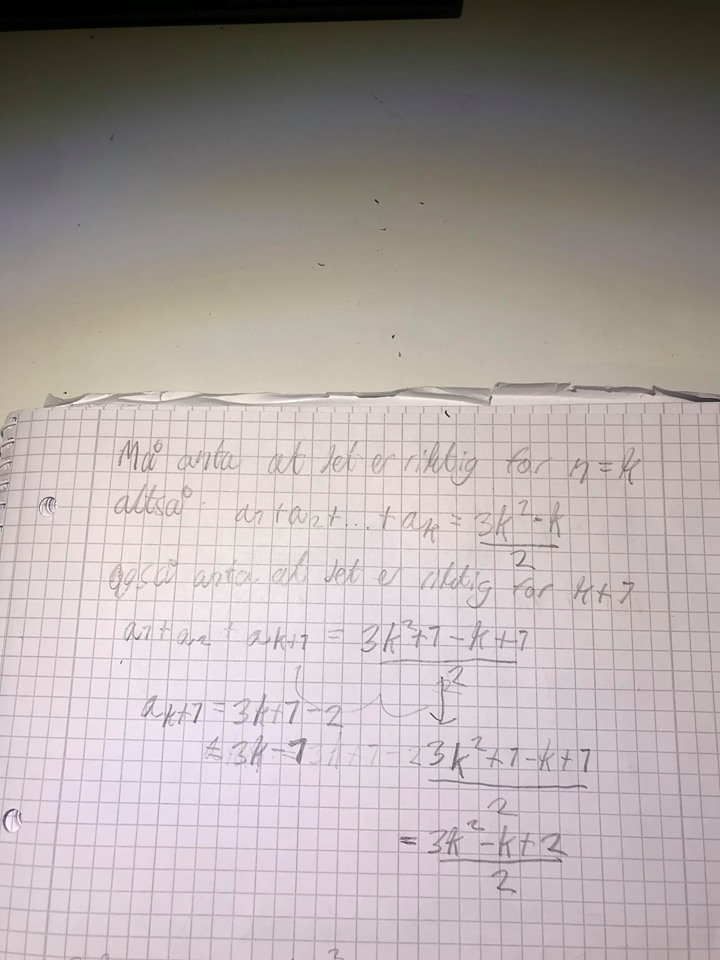 Må anta at det er riktig for n = k
altså: a₁+a₂+...+aₖ = (3k²-k)/2
også anta at det er riktig for k+1
a₁+a₂+aₖ₊₁ = (3k²+1-k+1)/2
aₖ₊₁ = 3k+1-2
= 3k-1 (3k²+1-k+1)/2
= (3k²-k+2)/2